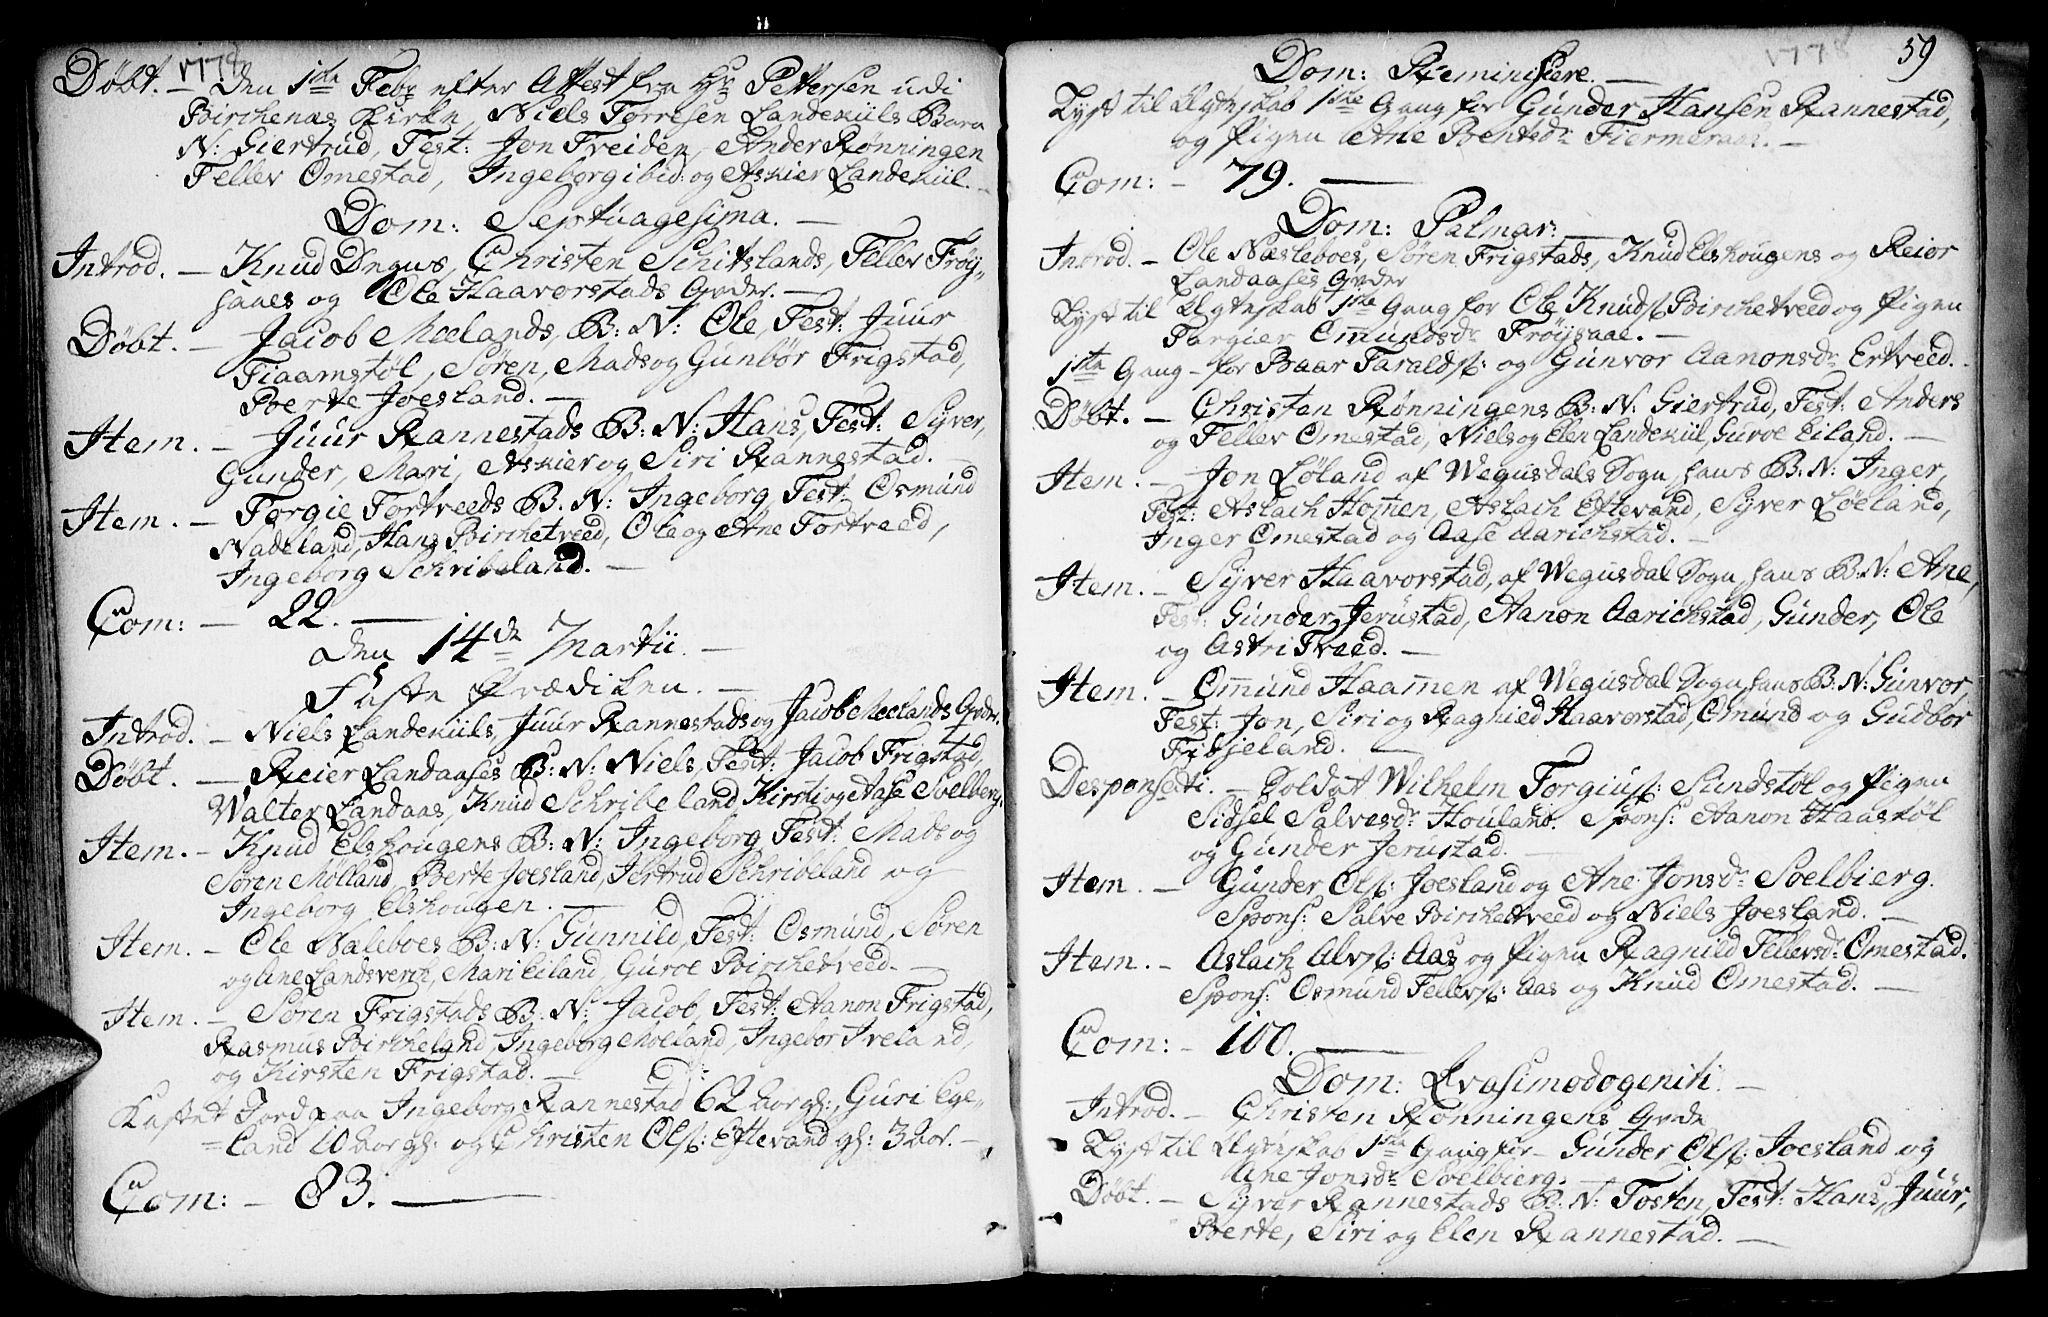 1778
Døbt. — Den 1de Febr efter Attest fra Hr Pettersen udi
Birchenæs Kirke, Niels Torresen Landekiils Barn
N: Giertrud, Test: Jon Freiden, Ander Rønningen
Tellev Omestad, Ingeborg ibid: og Askier Landekiil. —
Dom: Septuagesima. —
Introd. — Knud Dngus, Christen Schitslands, Tellev Frøy-
saaes og Ole Haavorstads Qvder. —
Døbt. — Jacob Meelands, B: N: Ole, Test: Juur
Tiaamstøl, Søren, Mads og Gunbør Frigstad,
Berte Joesland. —
Item. — Juur Rannestads B: N: Hans, Test: Syver,
Gunder, Mari, Askier og Siri Rannestad. —
Item. — Torgie Tortveeds B. N: Ingeborg, Test: Osmund
Wadeland, Hans Birchetveed, Ole og Ane Tortveed,
Ingeborg Schribeland. —
Com: — 22. —
den 14de Martii —
Faste Prædiken. —
Introd. — Niels Landekiils, Juur Rannestads og Jacob Meelands Qvdr.
Døbt. — Reier Landaases B: N: Niels, Test: Jacob Frigstad,
Walter Landaas, Knud Schribeland Kirsti og Aase Soelberg.
Item. — Knud Elshougens B: N: Ingeborg Test: Mads og
Søren Mölland, Berte Joesland, Jertrud Schribeland og
Ingeborg Elshougen. —
Item. — Ole Naleboes B: N: Gunnild, Test: Osmund, Søren
og Ane Landsverk, Mari Eiland, Guroe Birchetveed. —
Item. — Søren Frigstads B: N: Jacob, Test: Aanon Frigstad,
Rasmus Bircheland, Ingeborg Moeland, Ingebor Ireland,
og Kirsten Frigstad. —
Kastet Jord paa Ingeborg Rannestad 62 aar gl:, Guri Ege-
=land 10 aar gl: og Christen Ols: Eftevand gl: 3 aar. —
Com: — 83. —
1778 59
Dom: Reminiscere. —
Lyst til Ægteskab 1ste Gang for Gunder Hansen Rannestad,
og Pigen Ane Bentsdr Tiermeraas. —
Com: — 79. —
Dom: Palmar: —
Introd. — Ole Næsleboes, Søren Frigstads, Knud Elshougens og Reior
Landaases Qvder
Lyst til Ægteskab 1ste Gang for Ole Knuds: Birchetveed og Pigen
Targier Omundsdr Frøysaae. —
1ste Gang — for Baar Taralds: og Gunvor Aanonsdr Ertveed. —
Døbt. — Christen Rønningens B: N: Giertrud, Test: Anders
og Tellev Omestad, Niels og Elen Landekiil, Guroe Eiland. —
Item. — Jon Løland af Wegusdals Sogn, hans B: N: Inger,
Test: Aslach Homen, Aslach Eftevand, Syver Løeland,
Inger Omestad og Aase Aarichstad. —
Item. — Syver Haavorstad, af Wegusdal Sogn, hans B: N: Ane,
Test: Gunder Jerustad, Aanon Aarichstad, Gunder, Ole
og Astri Tveed. —
Item. — Omund Haamen af Wegusdal Sogn, hans B: N: Gunvor,
Test: Jon, Siri og Ragnied Haavorstad, Osmund og Gudbor
Fribsjeland. —
Desponsati. — Soldat Wilhelm Torgius: Sundstøl og Pigen
Sidsel Salvesdr Houland. Spons: Aanon Haastøl
og Gunder Jerustad. —
Item. — Gunder Ols: Joesland og Ane Jonsdr Soelbierg.
Spons: Salve Birchetveed og Niels Joesland. —
Item. — Aslach Alvs: Aas og Pigen Ragnild Tellevsdr Omestad.
Spons: Osmund Tellevs: Aas og Knud Omestad. —
Com: — 100. —
Dom: Qvasimodogeniti. —
Introd. — Christen Rønningens Qvde
Lyst til Ægteskab 1ste Gang for — Gunder Ols: Joesland og
Ane Jonsdr Soelbierg. —
Døbt. — Syver Rannestads B: N: Tosten, Test: Hans, Juur,
Berte, Siri og Elen Rannestad. —